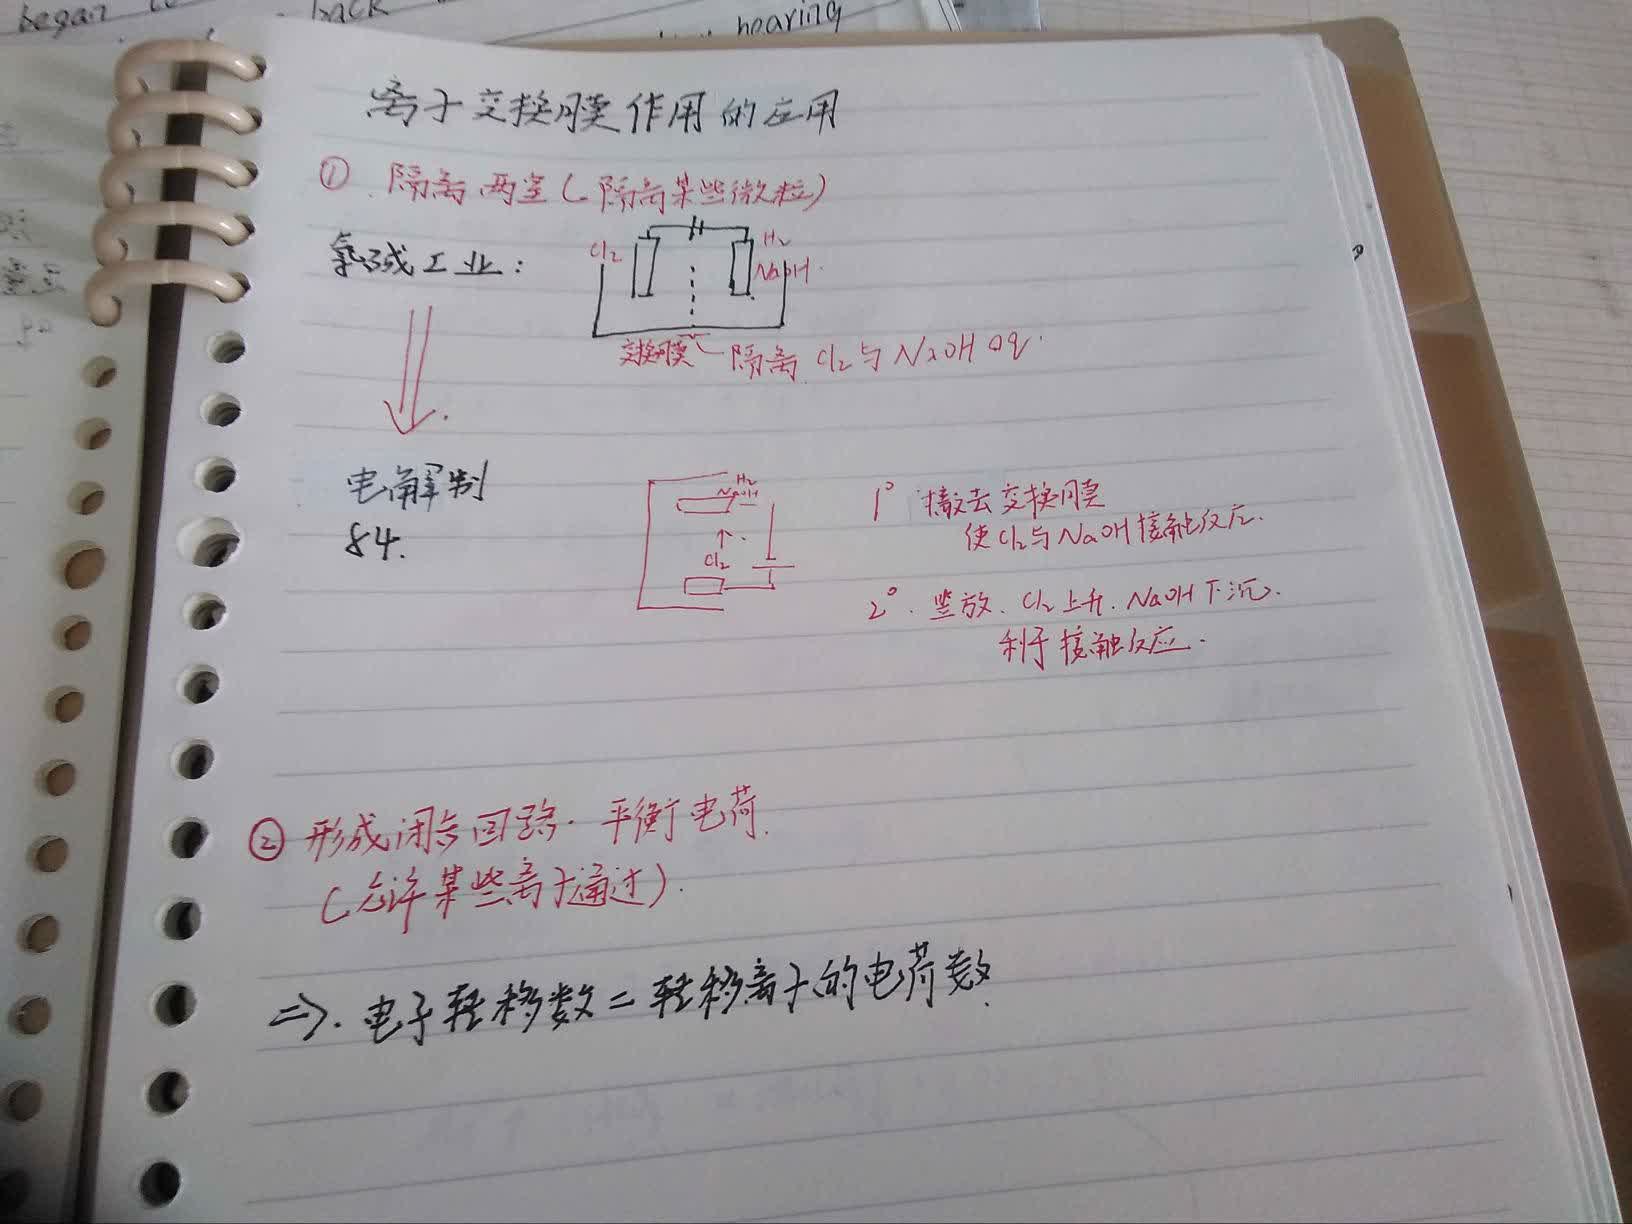 began
back
hearing
离子交换膜作用的应用
① 隔离两室(隔离某些微粒)
氯碱工业:
Cl₂
H₂
NaOH
交换膜 隔离 Cl₂与NaOH aq.
电解制
84.
H₂
NaOH
Cl₂
1° 撤去交换膜
使Cl₂与NaOH接触反应.
2°. 竖放. Cl₂上升. NaOH下沉.
利于接触反应.
② 形成闭合回路. 平衡电荷.
(允许某些离子通过).
⇒. 电子转移数=转移离子的电荷数.